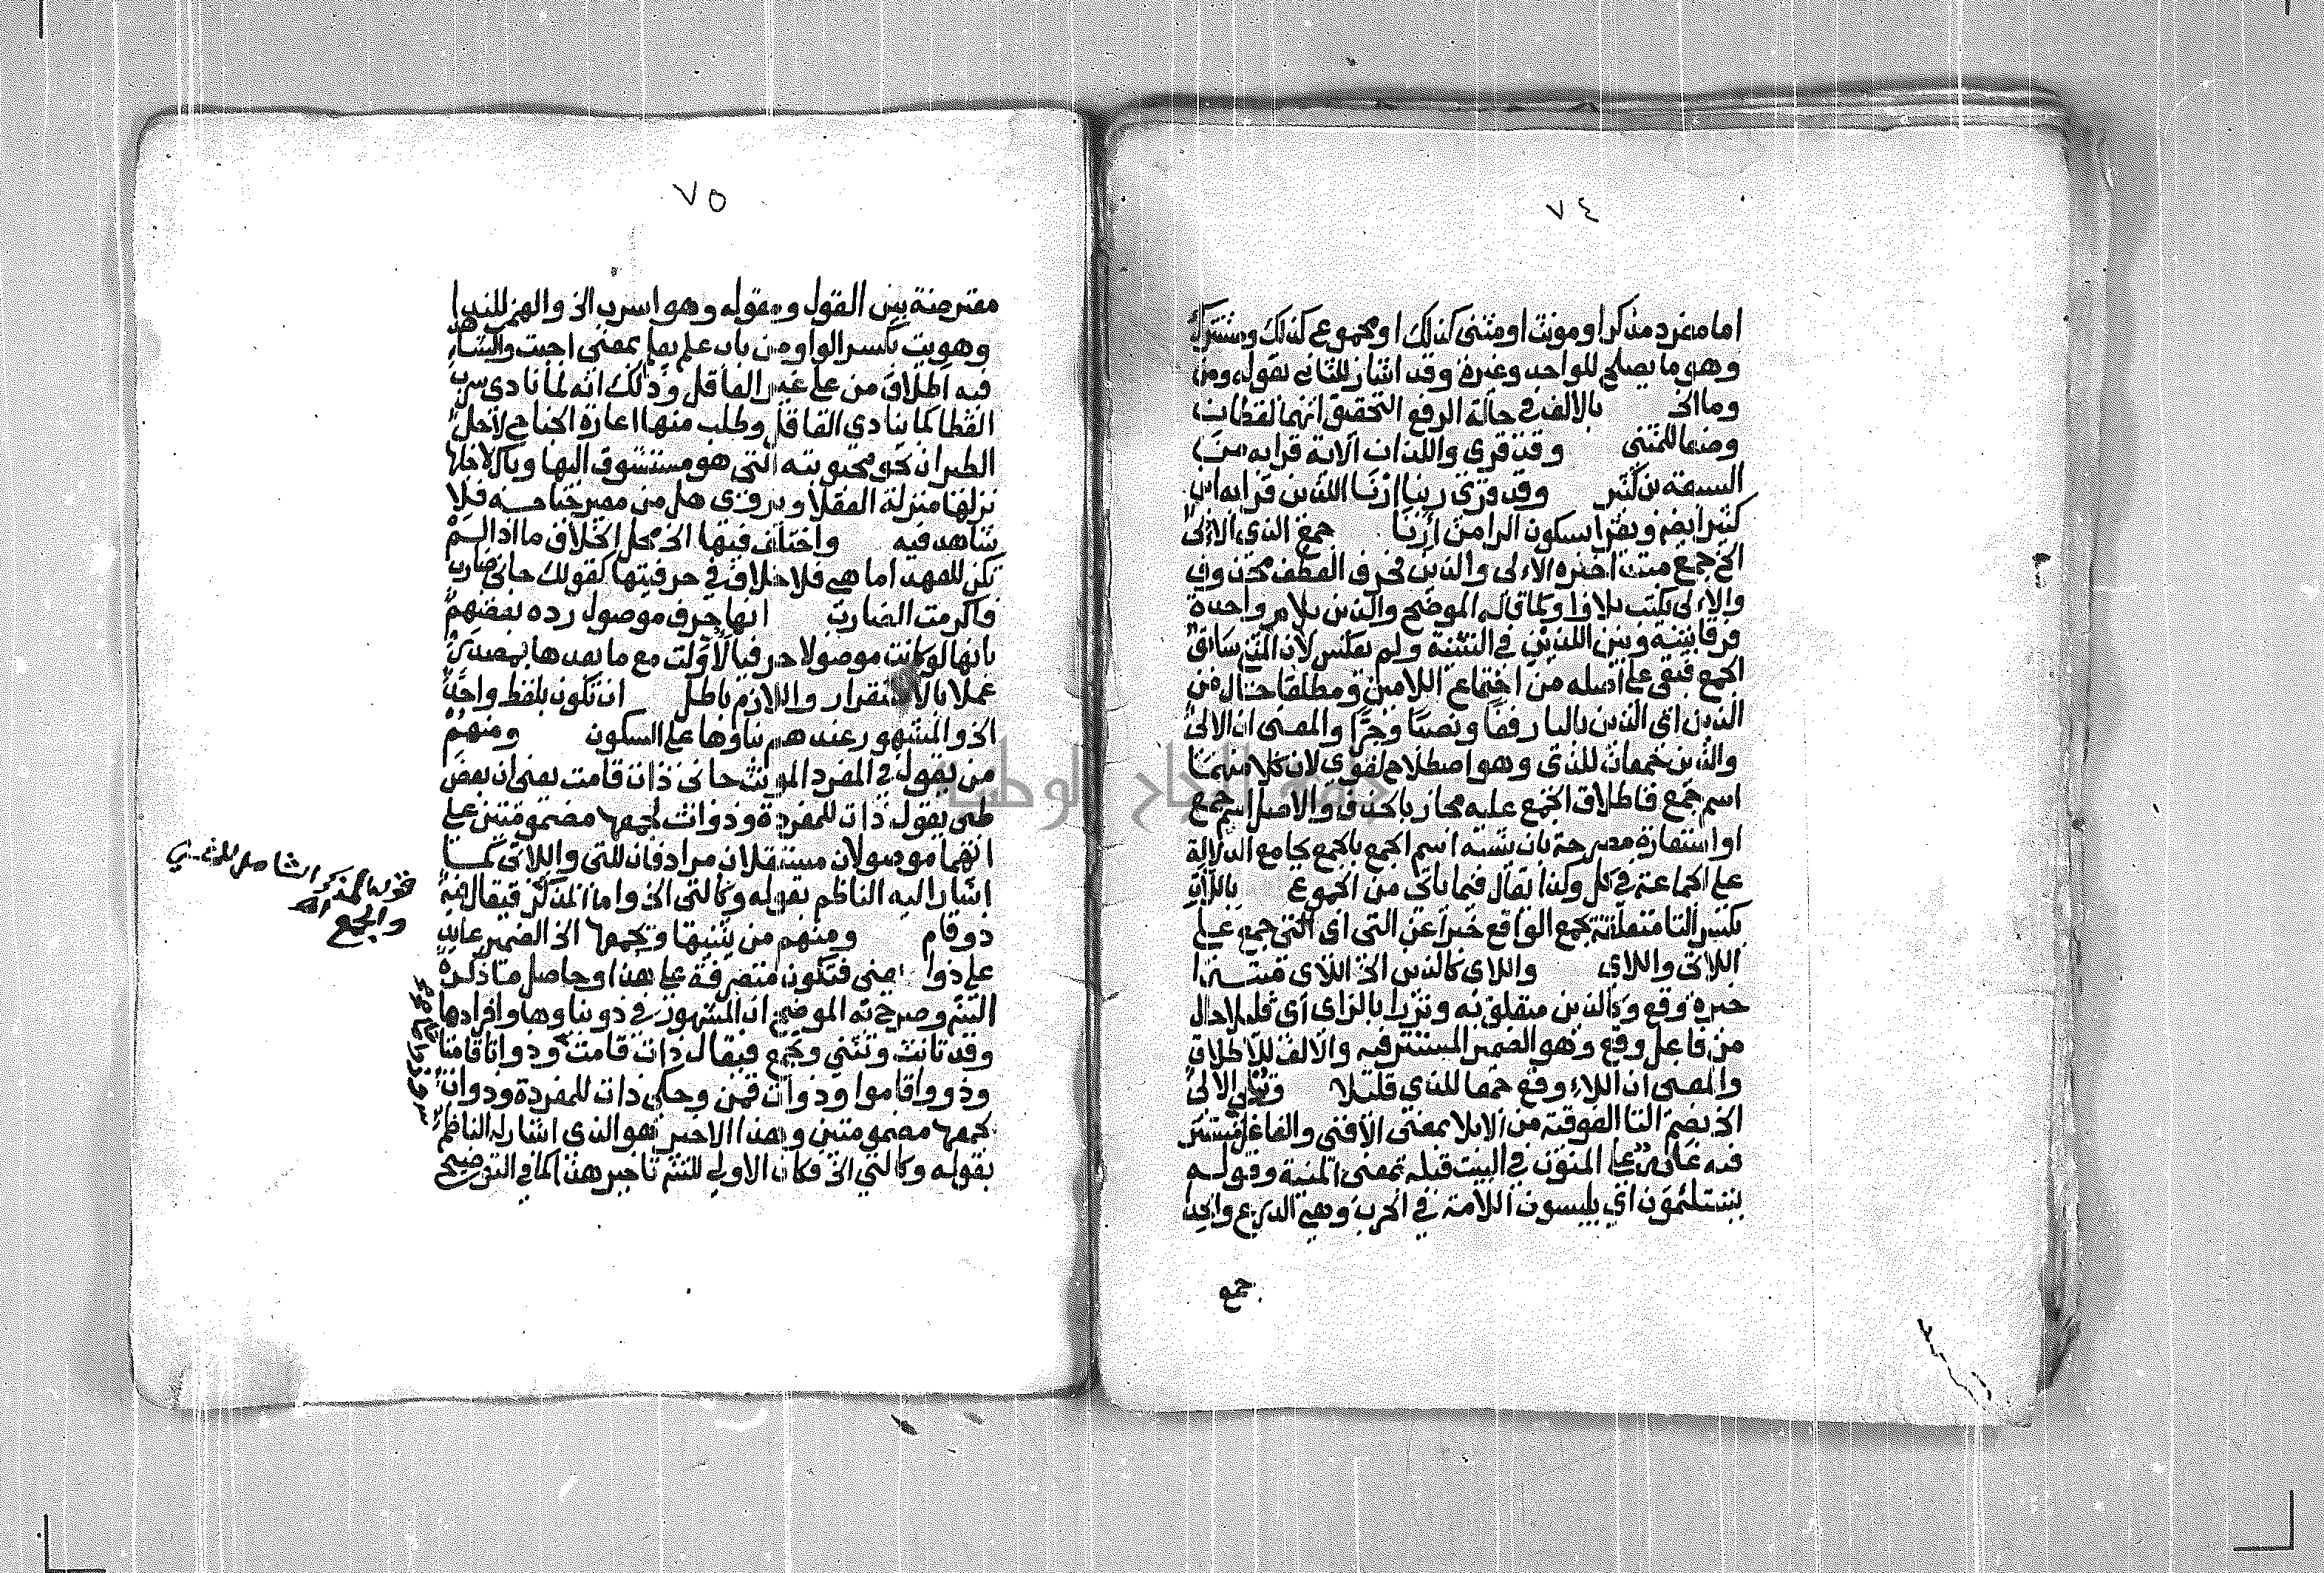 ٧٤
اما مفرد مذكرا ومونث او مثنى كذلك او مجموع كذلك ومشترك
وهو ما يصلح للواحد وغيره وقد اشار للثاني بقوله ومن
وما الخ بالالف في حالة الرفع التحقيق انهما لفظان
وضعا للمثنى وقد قرى واللذان الآية قرا به من
السبعة بن كثير وقد قرى ربنا ارنا اللذين قرا به ابن
كثير ايضا ويقرا بسكون الرا من ارنا جمع الذي الاولى
الخ جمع مبتدا خبره الاولى والذين فحرف العطف محذوف
والاولى يكتب بلا واو كما قاله الموضح والذين بلام واحدة
فرقا بينه وبين اللذين في التثنية ولم يعكس لان المثنى سابق
الجمع فبقى على اصله من اجتماع اللامين ومطلقا حال من
الذين اي الذين باليا رفعا ونصبا وجرا والمعنى ان الاولى
والذين جمعان للذي وهو اصطلاح لغوي لان كلا منهما
اسم جمع فاطلاق الجمع عليه مجاز بالحذف والاصل اسم جمع
او استعارة مصرحة بان شبه اسم الجمع بالجمع بجامع الدلالة
على الجماعة في كل وكذا يقال فيما ياتي من الجموع باللات
بكسر التا متعلقة بجمع الواقع خبرا عن التي اي التي جمع على
اللاتي واللاي واللاي كالذين الخ اللاي مبتدا
خبره وقع وكالذين متعلق به ونزرا بالزاي اي قليلا حال
من فاعل وقع وهو الضمير المستتر فيه والالف للاطلاق
والمعنى ان اللاء وقع جمعا للذي قليلا وتبلي الاولى
الخ بضم التا الفوقية من الابلا بمعنى الافنى والفاعل مستتر
فيه عائد على المنون في البيت قبله بمعنى المنية وقوله
يستلئمون اي يلبسون اللامة في الحرب وهي الدرع واحد
جمع
٧٥
معترضة بين القول ومقوله وهو اسرب الخ والهمز للندا
وهويت بكسر الواو من باب علم يعلم بمعنى احببت والشاهد
فيه اطلاق من على غير العاقل وذلك انه لما نادى سرب
القطا كما ينادي العاقل وطلب منها اعارة الجناح لاجل
الطيران نحو محبوبته التي هو متشوق اليها وباكلا خلها
نزلها منزلة العقلا ويروى هل من معير جناحه فلا
شاهد فيه واختلف فيها الخ محل الخلاف ما اذا لم
تكن للعهد اما هي فلا خلاف في حرفيتها كقولك جاني ضارب
فاكرمت الضارب انها حرف موصول رده بعضهم
بانها لو كانت موصولا حرفيا لاولت مع ما بعدها بمصدر
عملا بالاستقرار واللازم باطل ان تكون بلفظ واحد
الخ والمشهور عندهم بناوها على السكون ومنهم
من يقول في المفرد المونث جاني ذات قامت يعني ان بعض
طي يقول ذات للمفردة وذوات لجمعها مضمومتين على
انهما موصولان مستقلان مرادفان للتي واللاتي كما
اشار اليه الناظم بقوله وكالتي الخ واما المذكر فيقال فيه
ذو قام ومنهم من يثنيها ويجمعها الخ الضمير عايد
على ذوا بمعنى فتكون متصرفة على هذا وحاصل ما ذكره
الشم وصرح به الموضح ان المشهور في ذو بناوها وافرادها
وقد تانث وتثنى وتجمع فيقال ذات قامت وذواتا قامتا
وذوو اقاموا وذوات قمن وحكي ذات للمفردة وذوات
لجمعها مضمومتين وهذا الاخير هو الذي اشار له الناظم
بقوله وكالتي الخ فكان الاولى للشم تاخير هذا كما في التوضيح
قوله المذكر الشامل للمثنى
والجمع اهـ